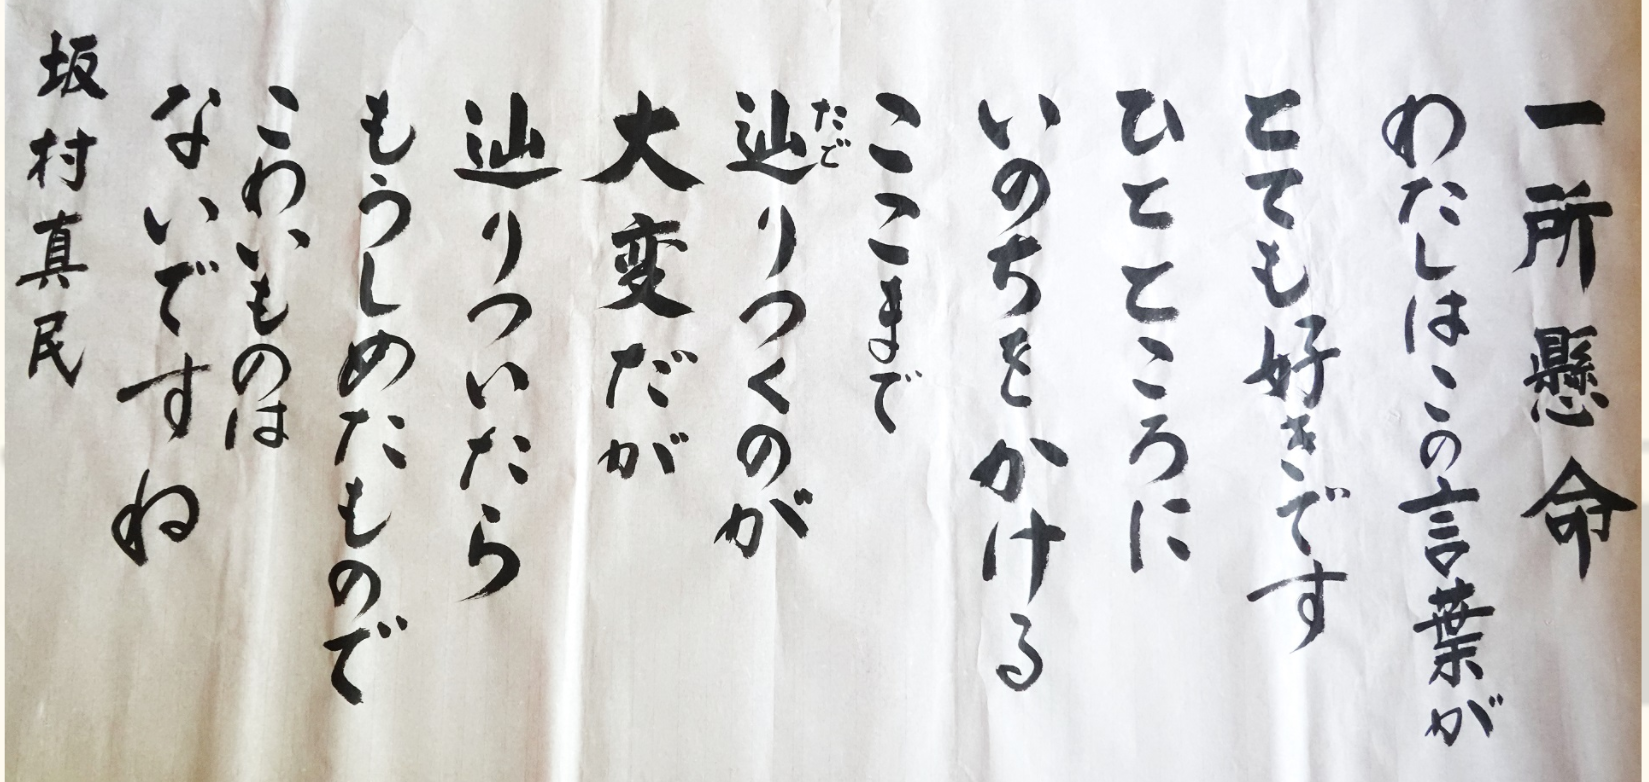 一所懸命
わたしはこの言葉が
とても好きです
ひとところに
いのちをかける
ここまで
辿りつくのが
たど
大変だが
辿りついたら
もうしめたもので
こわいものは
ないですね
坂村真民